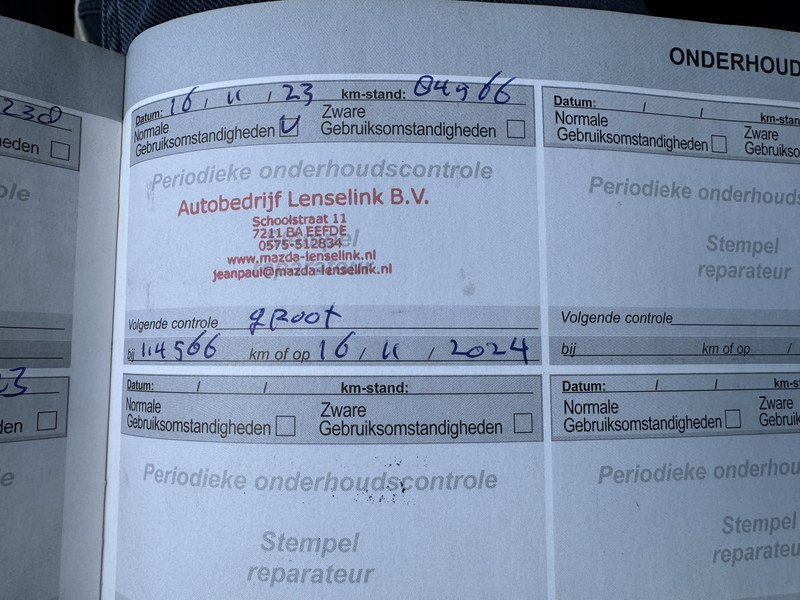 ONDERHOUD
238
heden
ole
e
23
den
Datum: 16 / 11 / 23 km-stand:
Normale Gebruiksomstandigheden V Zware Gebruiksomstandigheden
Periodieke onderhoudscontrole
Autobedrijf Lenselink B.V.
Schoolstraat 11
7211 BA EEFDE
0575-512834
www.mazda-lenselink.nl
jeanpaul@mazda-lenselink.nl
Stempel
reparateur
Volgende controle groot
bij 114966 km of op 16 / 11 / 2024
Datum: / / km-stand:
Normale Gebruiksomstandigheden Zware Gebruiksomstandigheden
Periodieke onderhoudscontrole
Stempel
reparateur
Datum: / / km-stan
Normale Gebruiksomstandigheden Zware Gebruikso
Periodieke onderhouds
Stempel
reparateur
Volgende controle
bij km of op /
Datum: / / km-st
Normale Gebruiksomstandigheden Zware Gebruiks
Periodieke onderhou
Stempel
reparateu